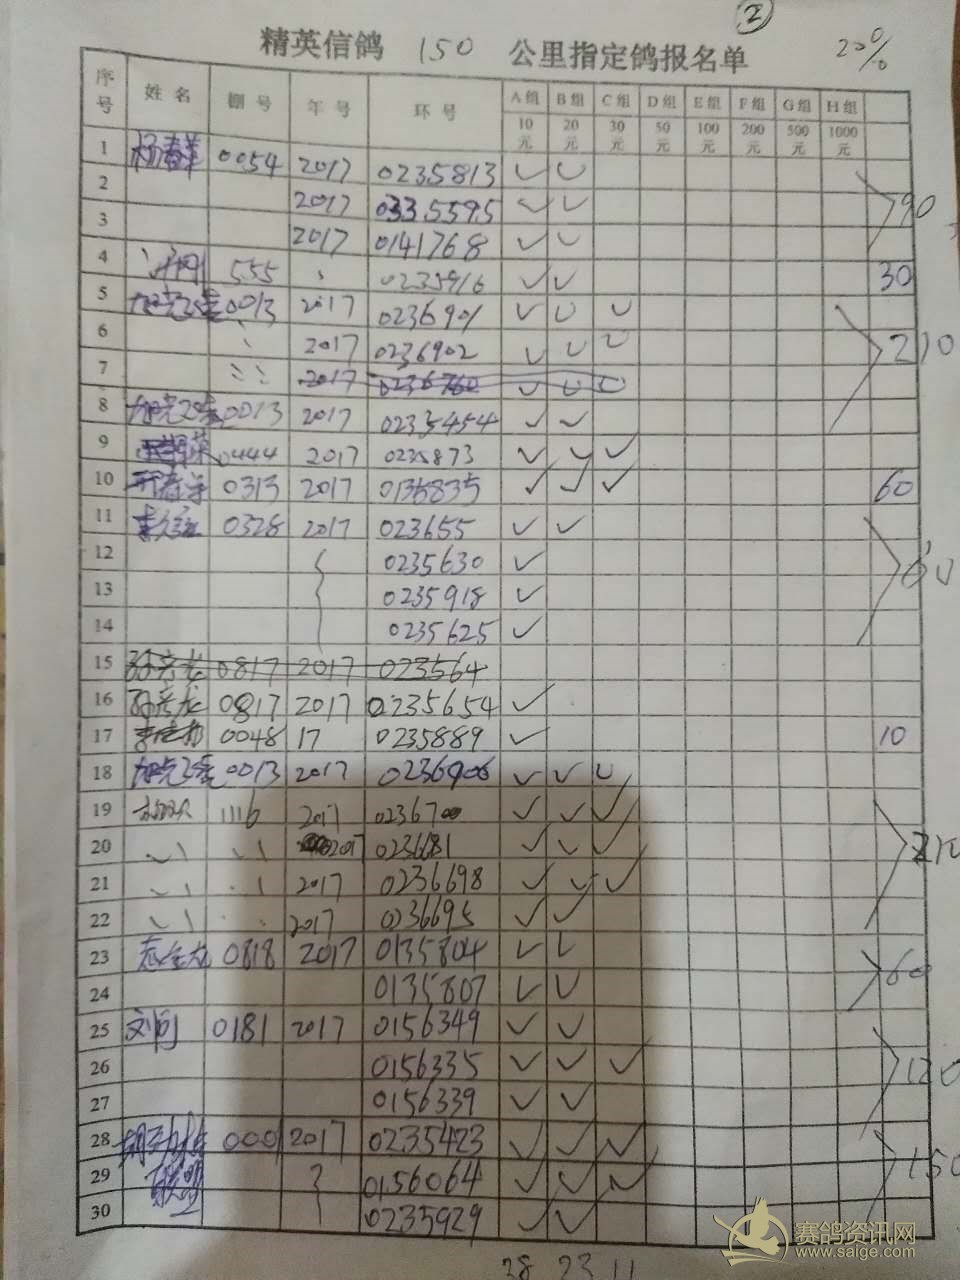 ②
精英信鸽 150 公里指定鸽报名单 20%
序号 姓名 棚号 年号 环号 A组 B组 C组 D组 E组 F组 G组 H组
10元 20元 30元 50元 100元 200元 500元 1000元
1 杨春革 0054 2017 0235813 ✓ ✓
2 2017 0335595 ✓ ✓ 90
3 2017 0141768 ✓ ✓
4 555 0235916 ✓ ✓ 30
5 0013 2017 0236901 ✓ ✓ ✓
6 2017 0236902 ✓ ✓ ✓ 210
7 2017 0236760 ✓ ✓ ✓
8 0013 2017 0235454 ✓ ✓
9 0444 2017 0235873 ✓ ✓ ✓
10 0313 2017 0136835 ✓ ✓ ✓ 60
11 0328 2017 023655 ✓ ✓
12 0235630 ✓ 60
13 0235918 ✓
14 0235625 ✓
15 孙彦龙 0817 2017 023564
16 孙彦龙 0817 2017 0235654 ✓
17 0048 17 0235889 ✓ 10
18 0013 2017 0236906 ✓ ✓ ✓
19 1116 2017 0236700 ✓ ✓ ✓
20 2017 0236681 ✓ ✓ ✓ 210
21 2017 0236698 ✓ ✓ ✓
22 2017 0236695 ✓ ✓
23 0818 2017 0135804 ✓ ✓ 60
24 0135807 ✓ ✓
25 刘向 0181 2017 0156349 ✓ ✓
26 0156335 ✓ ✓ ✓ 120
27 0156339 ✓ ✓
28 000 2017 0235423 ✓ ✓ ✓
29 联盟 0156064 ✓ ✓ ✓ 150
30 0235929 ✓ ✓
28 23 11
赛鸽资讯网
www.saige.com